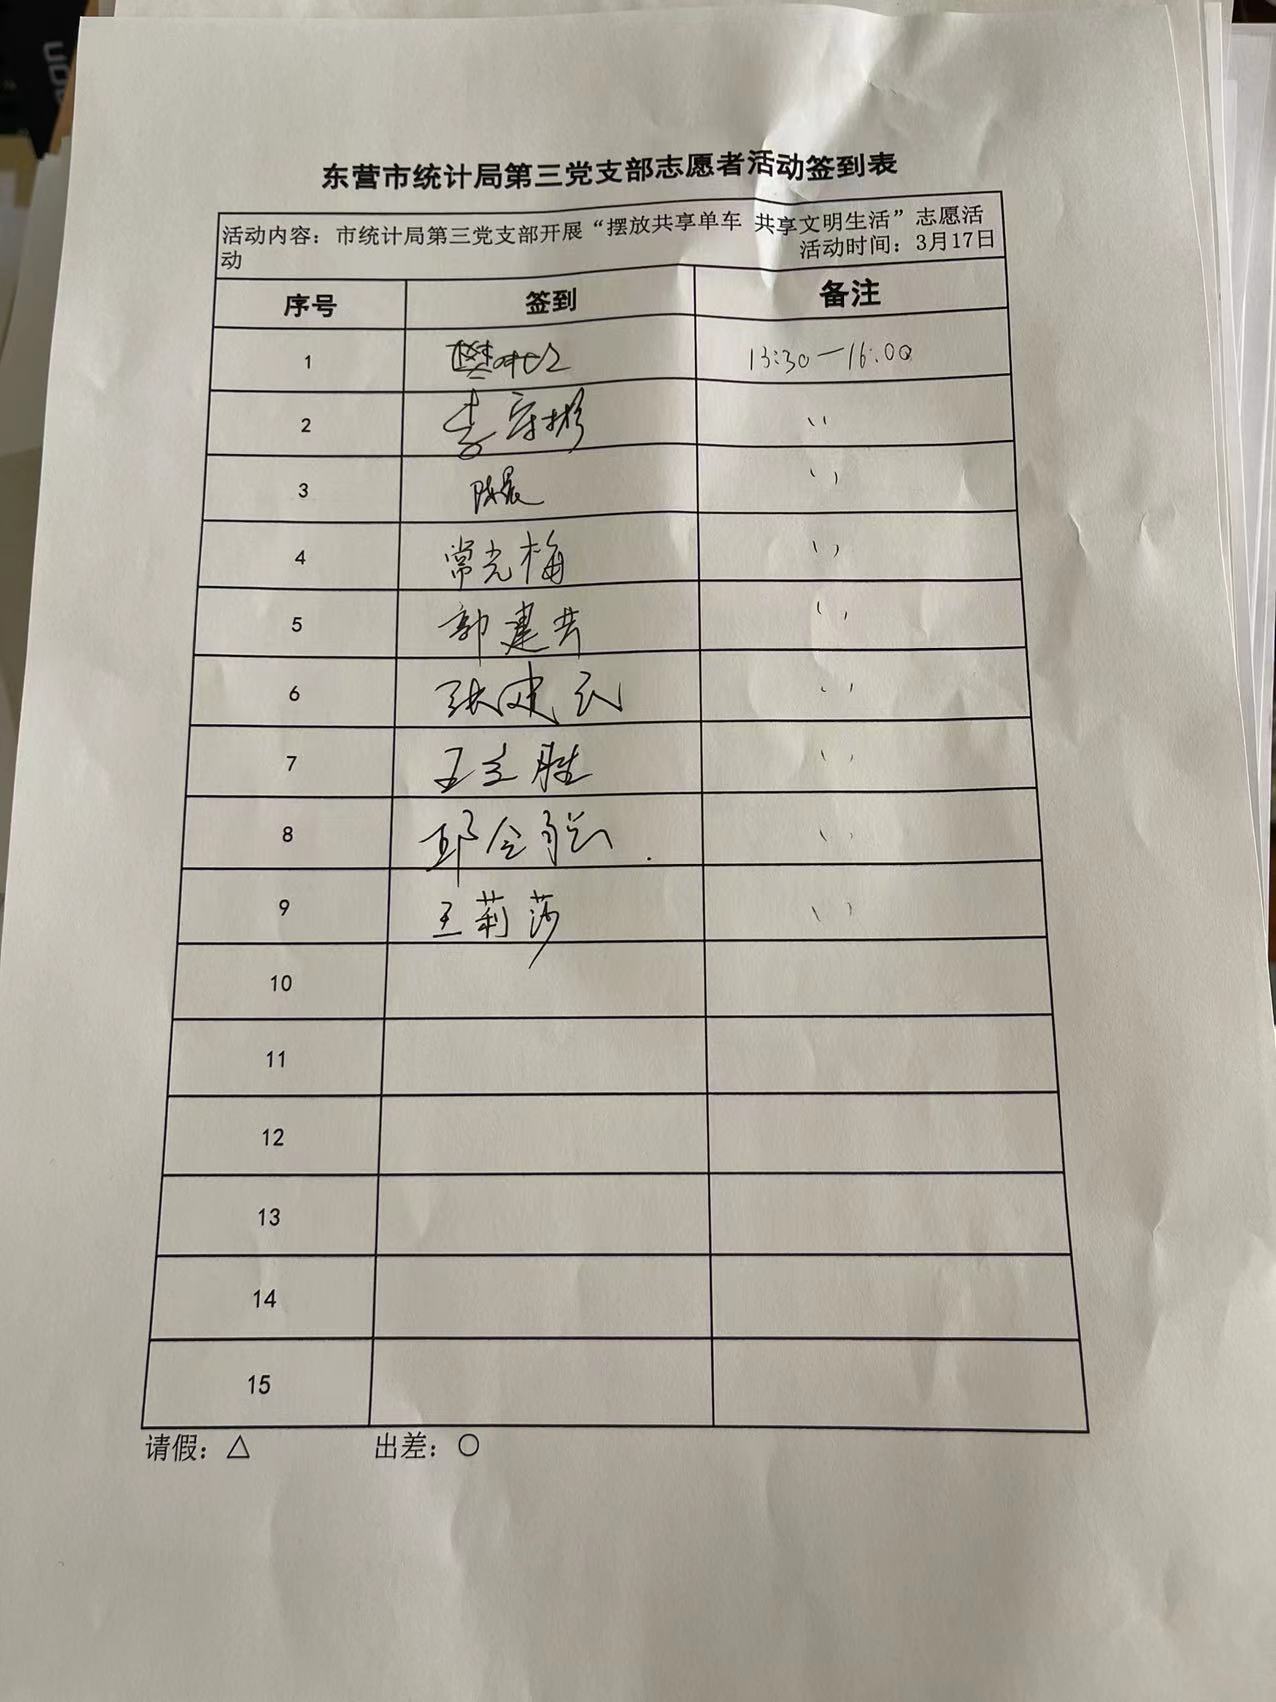 东营市统计局第三党支部志愿者活动签到表
活动内容：市统计局第三党支部开展“摆放共享单车 共享文明生活”志愿活
动 活动时间：3月17日
序号 签到 备注
1 樊 13:30—16:00
2 李守彬 〃
3 陈晨 〃
4 常光梅 〃
5 郭建共 〃
6 张建民 〃
7 王立胜 〃
8 邱会 〃
9 王莉莎 〃
10
11
12
13
14
15
请假：△ 出差：○